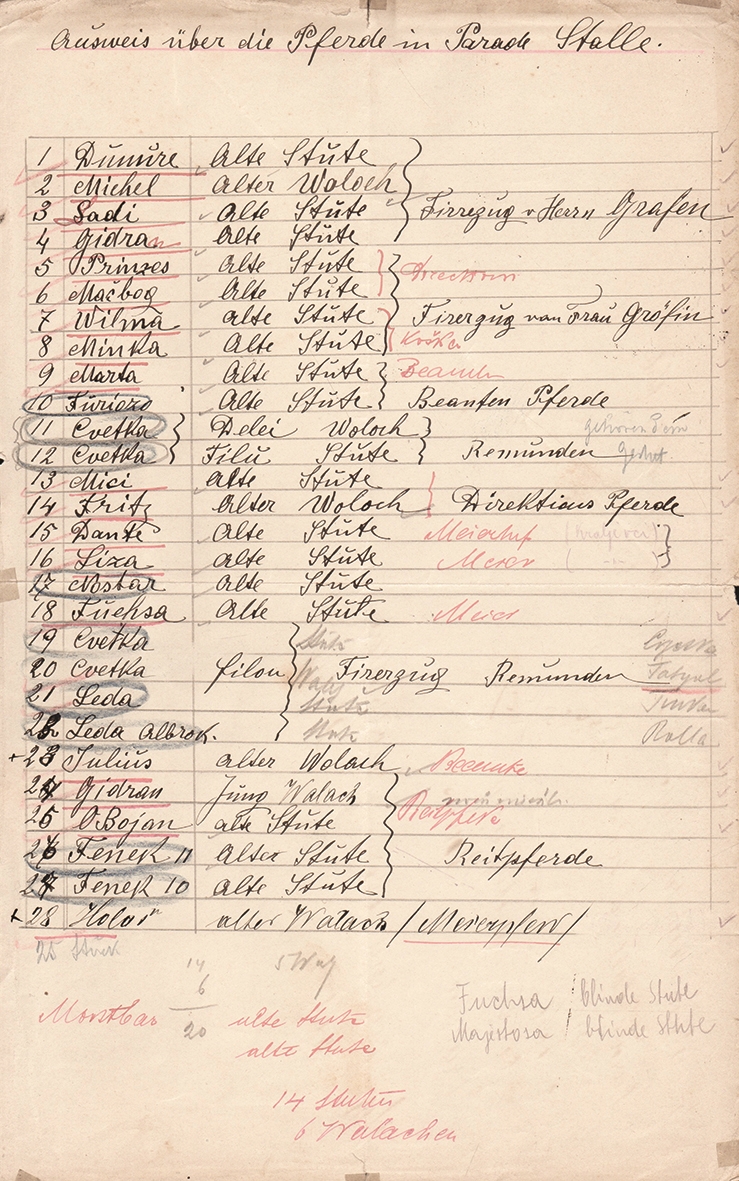 Ausweis über die Pferde in Parade Stalle.
1 Dumure Alte Stute
2 Michel Alter Woloch
3 Sadi Alte Stute Firrezug v Herrn Grafen
4 Gidran Alte Stute
5 Prinzes Alte Stute
6 Mačbog Alte Stute
7 Wilma Alte Stute Firerzug von Frau Gröfin
8 Minka Alte Stute
9 Marta Alte Stute Beamten
10 Furiozo Alte Stute Beamten Pferde
11 Cvetka Delei Woloch gehören dem
12 Cvetka Filu Stute Remunden Gestüt
13 Mici Alte Stute
14 Fritz Alter Woloch Direktions Pferde
15 Dante Alte Stute Meierhof
16 Liza Alte Stute Meier
17 Nostar Alte Stute
18 Fuchsa Alte Stute Meier
19 Cvetka Stute
20 Cvetka filou Wall Firerzug Remunden
21 Leda Stute
22 Leda Albrok. Stute Rolla
+23 Julius alter Wolach Beamte
24 Gidran Jung Walach
25 OBojan alte Stute Reitpferde
26 Fenek 11 Alter Stute Reitpferde
27 Fenek 10 alte Stute
+28 Holor alter Walach / Meierpferd /
25 Stück
14 5 Wal
6
20
alte Stute
alte Stute
Fuchsa / blinde Stute
Majestosa / blinde Stute
14 Stuten
6 Walachen